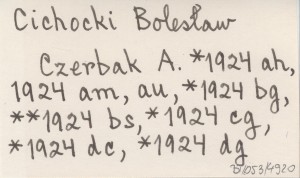 Cichocki Bolesław
Czerbak A. *1924 ah,
1924 am, au, *1924 bg,
**1924 bs, *1924 cg,
*1924 dc, *1924 dg